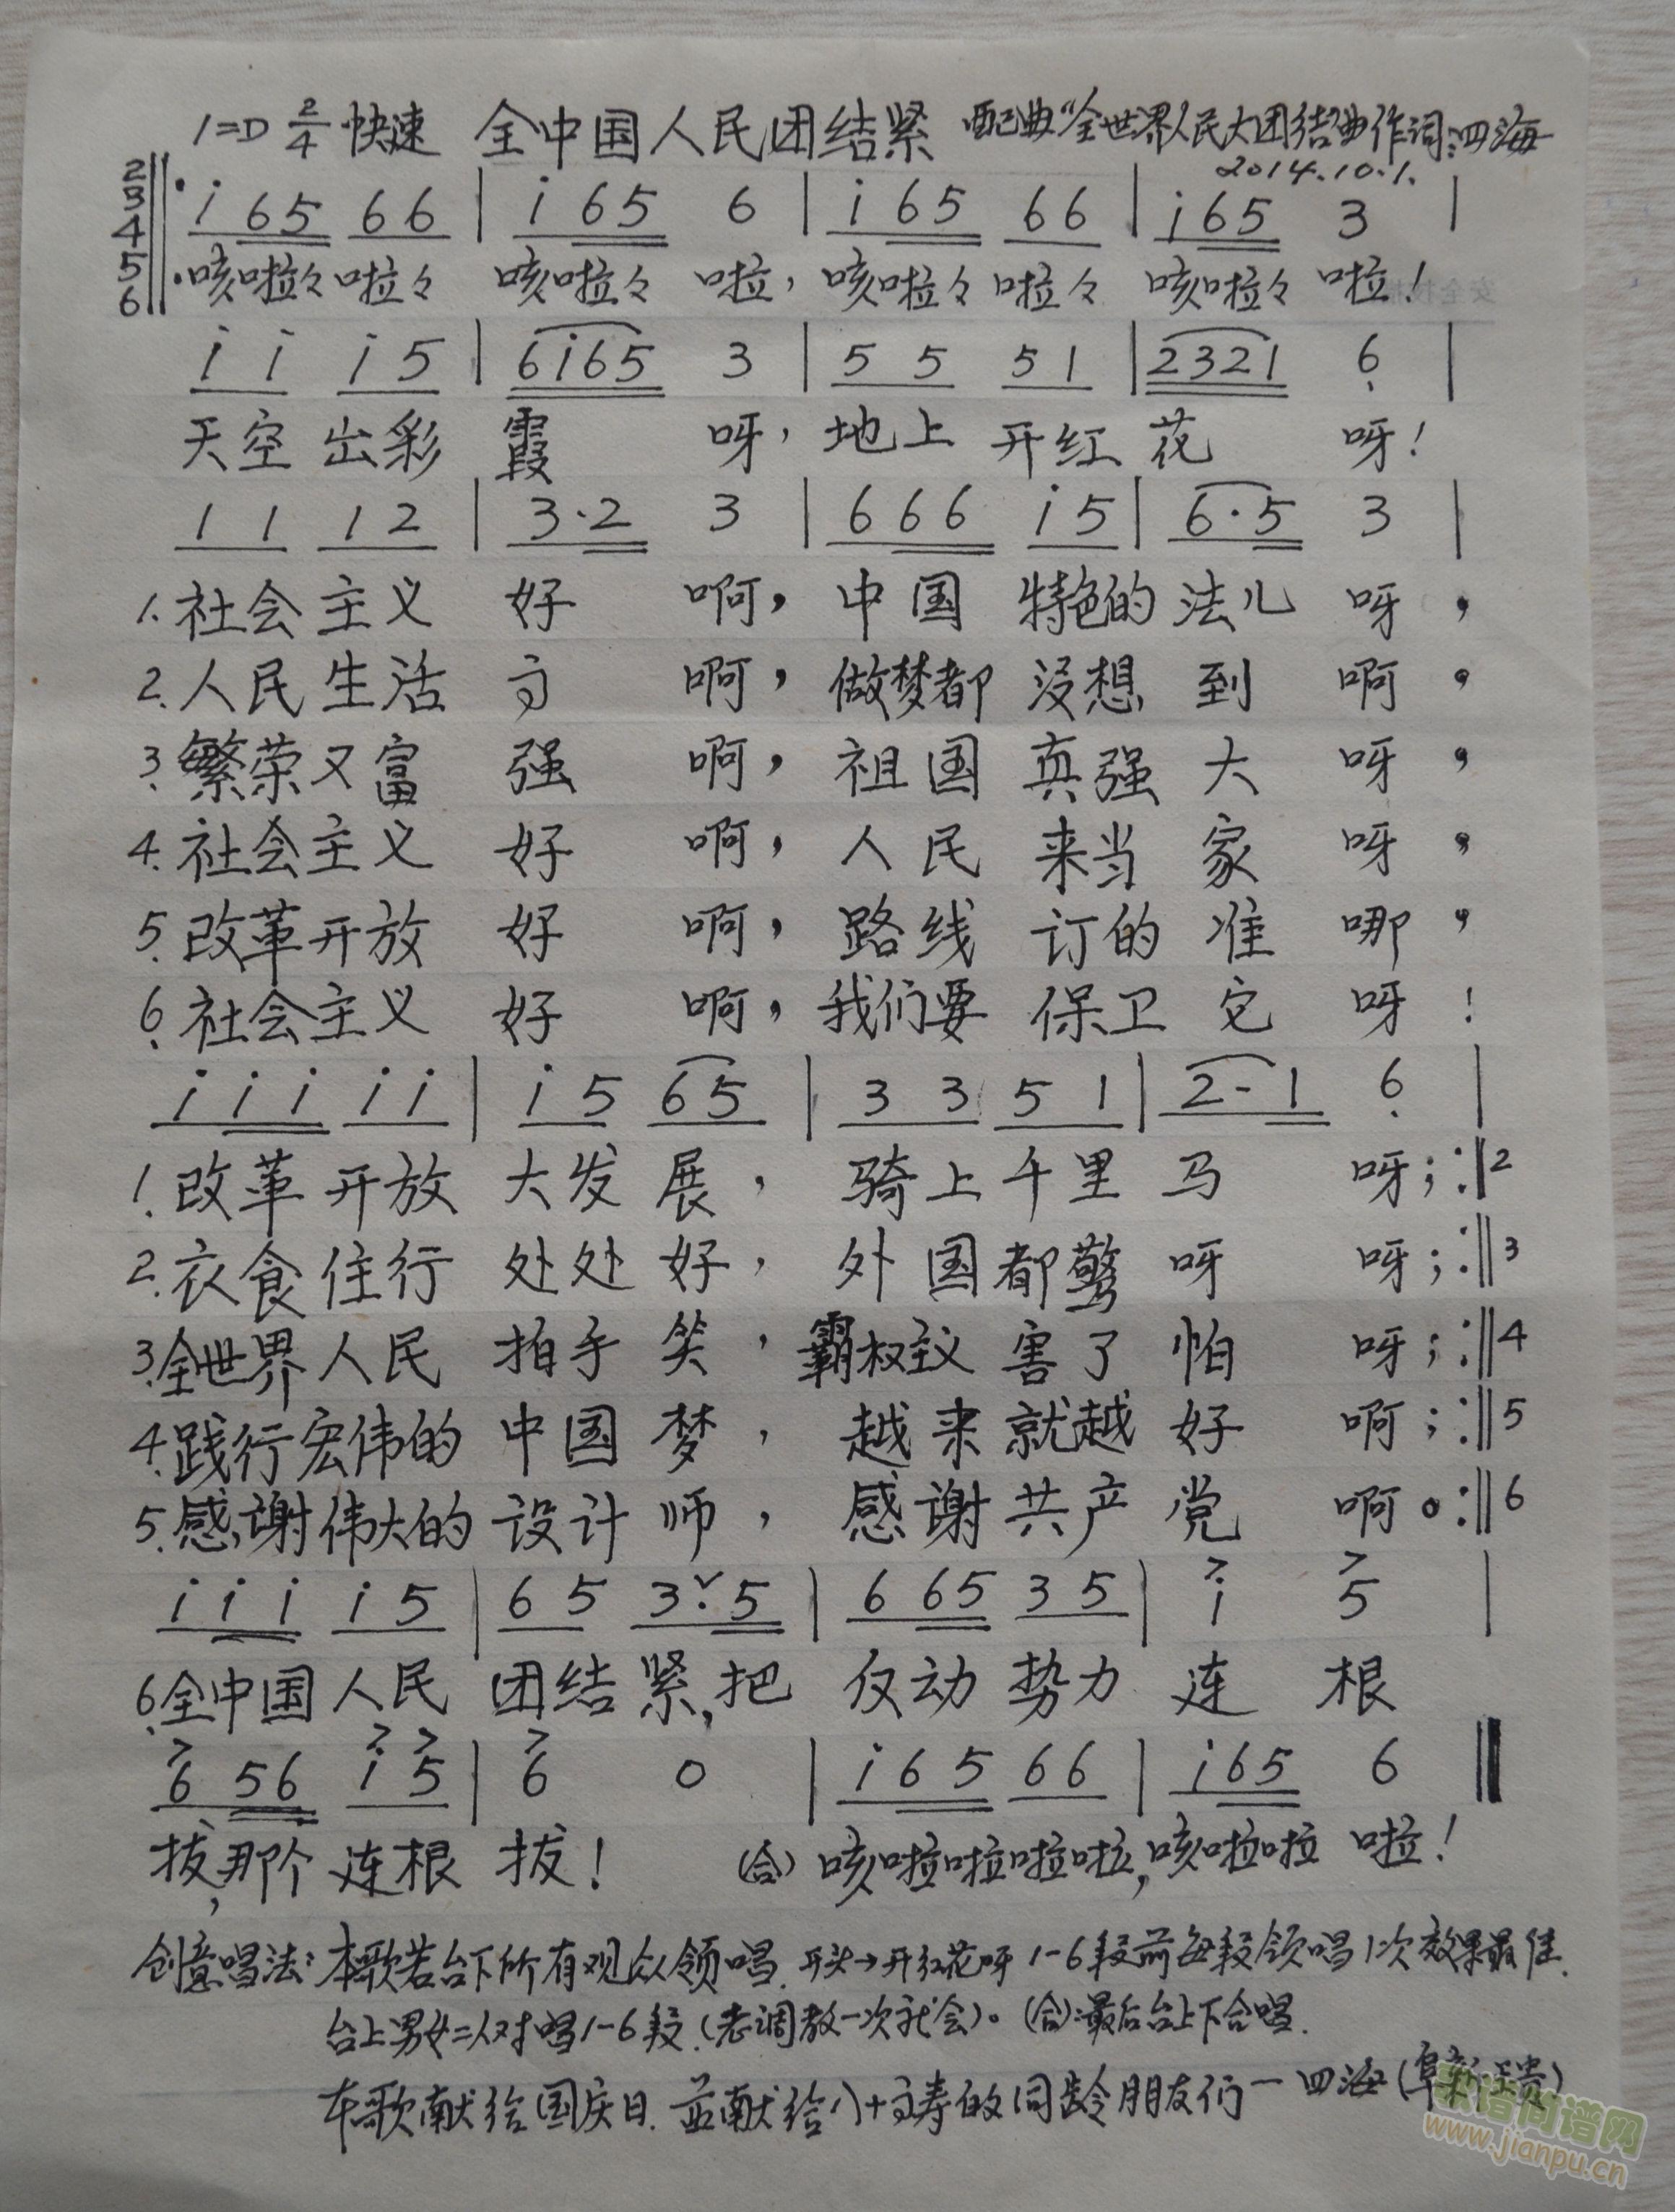 1=D 2/4 快速 全中国人民团结紧 配曲"全世界人民大团结"曲 作词:四海
2014.10.1.
2 3 4 5 6 ‖: i 65 66 | i 65 6 | i 65 66 | i 65 3 |
咳啦々 啦々 咳啦々 啦, 咳啦々 啦々 咳啦々 啦!
i i i 5 | 6i65 3 | 5 5 5 1 | 2321 6̣ |
天空 出彩 霞 呀, 地上 开红 花 呀!
1 1 1 2 | 3·2 3 | 6 6 6 i 5 | 6·5 3 |
1. 社会 主义 好 啊, 中国 特色的 法儿 呀,
2. 人民 生活 高 啊, 做梦都 没想 到 啊,
3. 繁荣又富 强 啊, 祖国 真强 大 呀,
4. 社会主义 好 啊, 人民 来当 家 呀,
5. 改革开放 好 啊, 路线 订的 准 哪,
6. 社会主义 好 啊, 我们要 保卫 它 呀!
i i i i i | i 5 6 5 | 3 3 5 1 | 2-1 6̣ |
1. 改革 开放 大发 展, 骑上 千里 马 呀; :‖2
2. 衣食 住行 处处 好, 外国都驚 呀 呀; :‖3
3. 全世界 人民 拍手 笑, 霸权主义 害了 怕 呀; :‖4
4. 践行宏伟的 中国 梦, 越来就越 好 啊; :‖5
5. 感谢伟大的 设计 师, 感谢 共产 党 啊。:‖6
i i i i 5 | 6 5 3·ˇ5 | 6 65 3 5 | i 5 |
6. 全中国 人民 团结 紧,把 仅动 势力 连 根
6 56 i 5 | 6 0 | i 6 5 66 | i 65 6 ‖
拔,那个 连根 拔! (合) 咳啦啦啦啦,咳啦啦 啦!
创意唱法: 本歌若台下所有观众领唱. 开头→开红花呀 1-6段前每段领唱1次效果最佳.
台上男女二人对唱1-6段.(老调教一次就会)。(合):最后台上下合唱.
本歌献给国庆日. 并献给八十高寿的同龄朋友们 — 四海 (阜新 贵)
简谱网
www.jianpu.cn